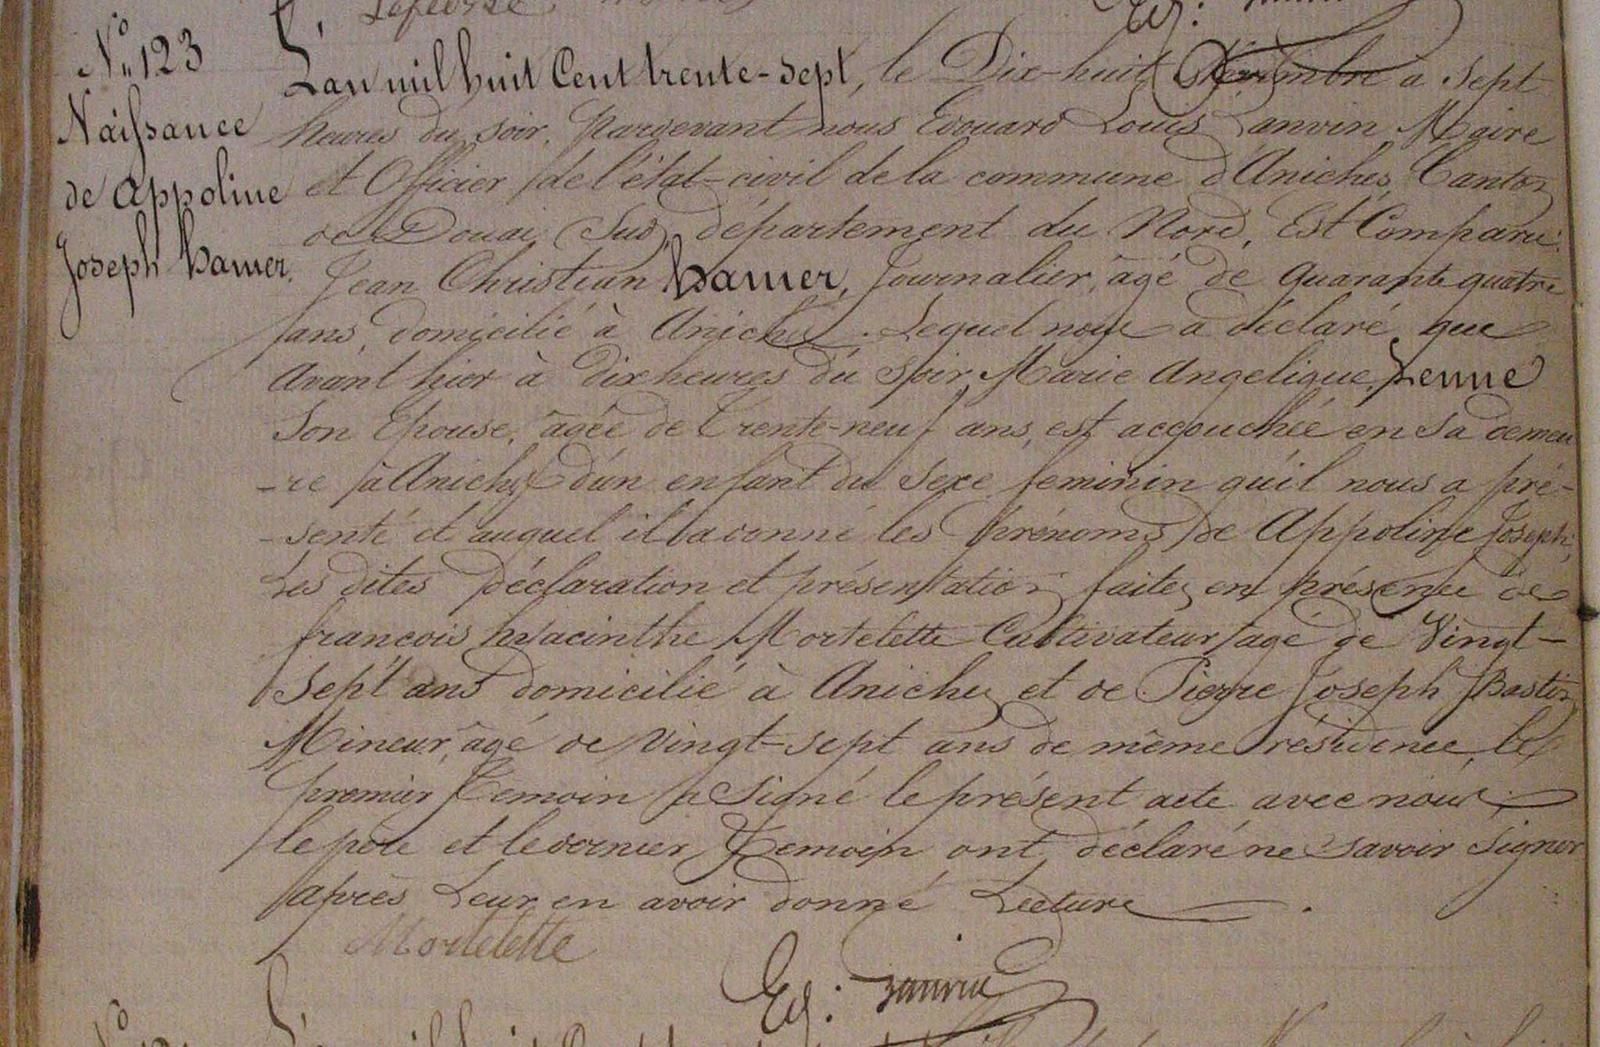 N° 123
Naissance
de Appoline
Joseph hamer.
L'an mil huit Cent trente-sept, le Dix-huit a Sept
heures du soir, Pardevant nous Edouard Louis Lanvin Maire
et Officier de l'état-civil de la commune d'Aniches, Canton
de Douai Sud, département du Nord, Est Comparu
Jean Christian hamer, Journalier, âgé de quarante quatre
ans, domicilié à Aniches. Lequel nous a déclaré que
Avant hier à dix heures du Soir, Marie Angelique Lenne
Son Epouse, âgée de trente-neuf ans, est accouchée en Sa demeu
-re à Aniches d'un enfant du Sexe feminin qu'il nous a pré-
-senté et auquel il a donné les prénoms de Appoline Joseph,
Les dites déclaration et présentation faites en présence de
francois hyacinthe Mortelette Cultivateur âgé de Vingt-
Sept ans domicilié à Aniches et de Pierre Joseph Bastin
Mineur, âgé de Vingt-sept ans de même résidence, le
premier temoin a Signé le présent acte avec nous,
le père et le dernier Temoin ont déclaré ne savoir Signer
après Leur en avoir donné Lecture.
Mortelette
Ed: Lanvin